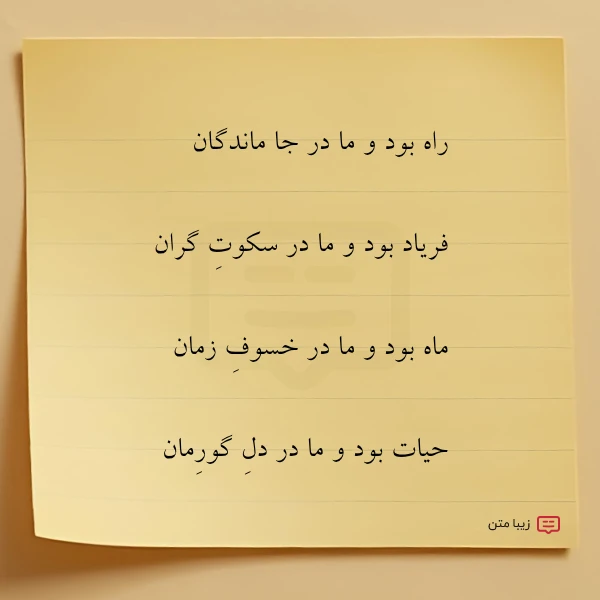 راه بود و ما در جا ماندگان
فریاد بود و ما در سکوتِ گران
ماه بود و ما در خسوفِ زمان
حیات بود و ما در دلِ گورِمان
زیبا متن